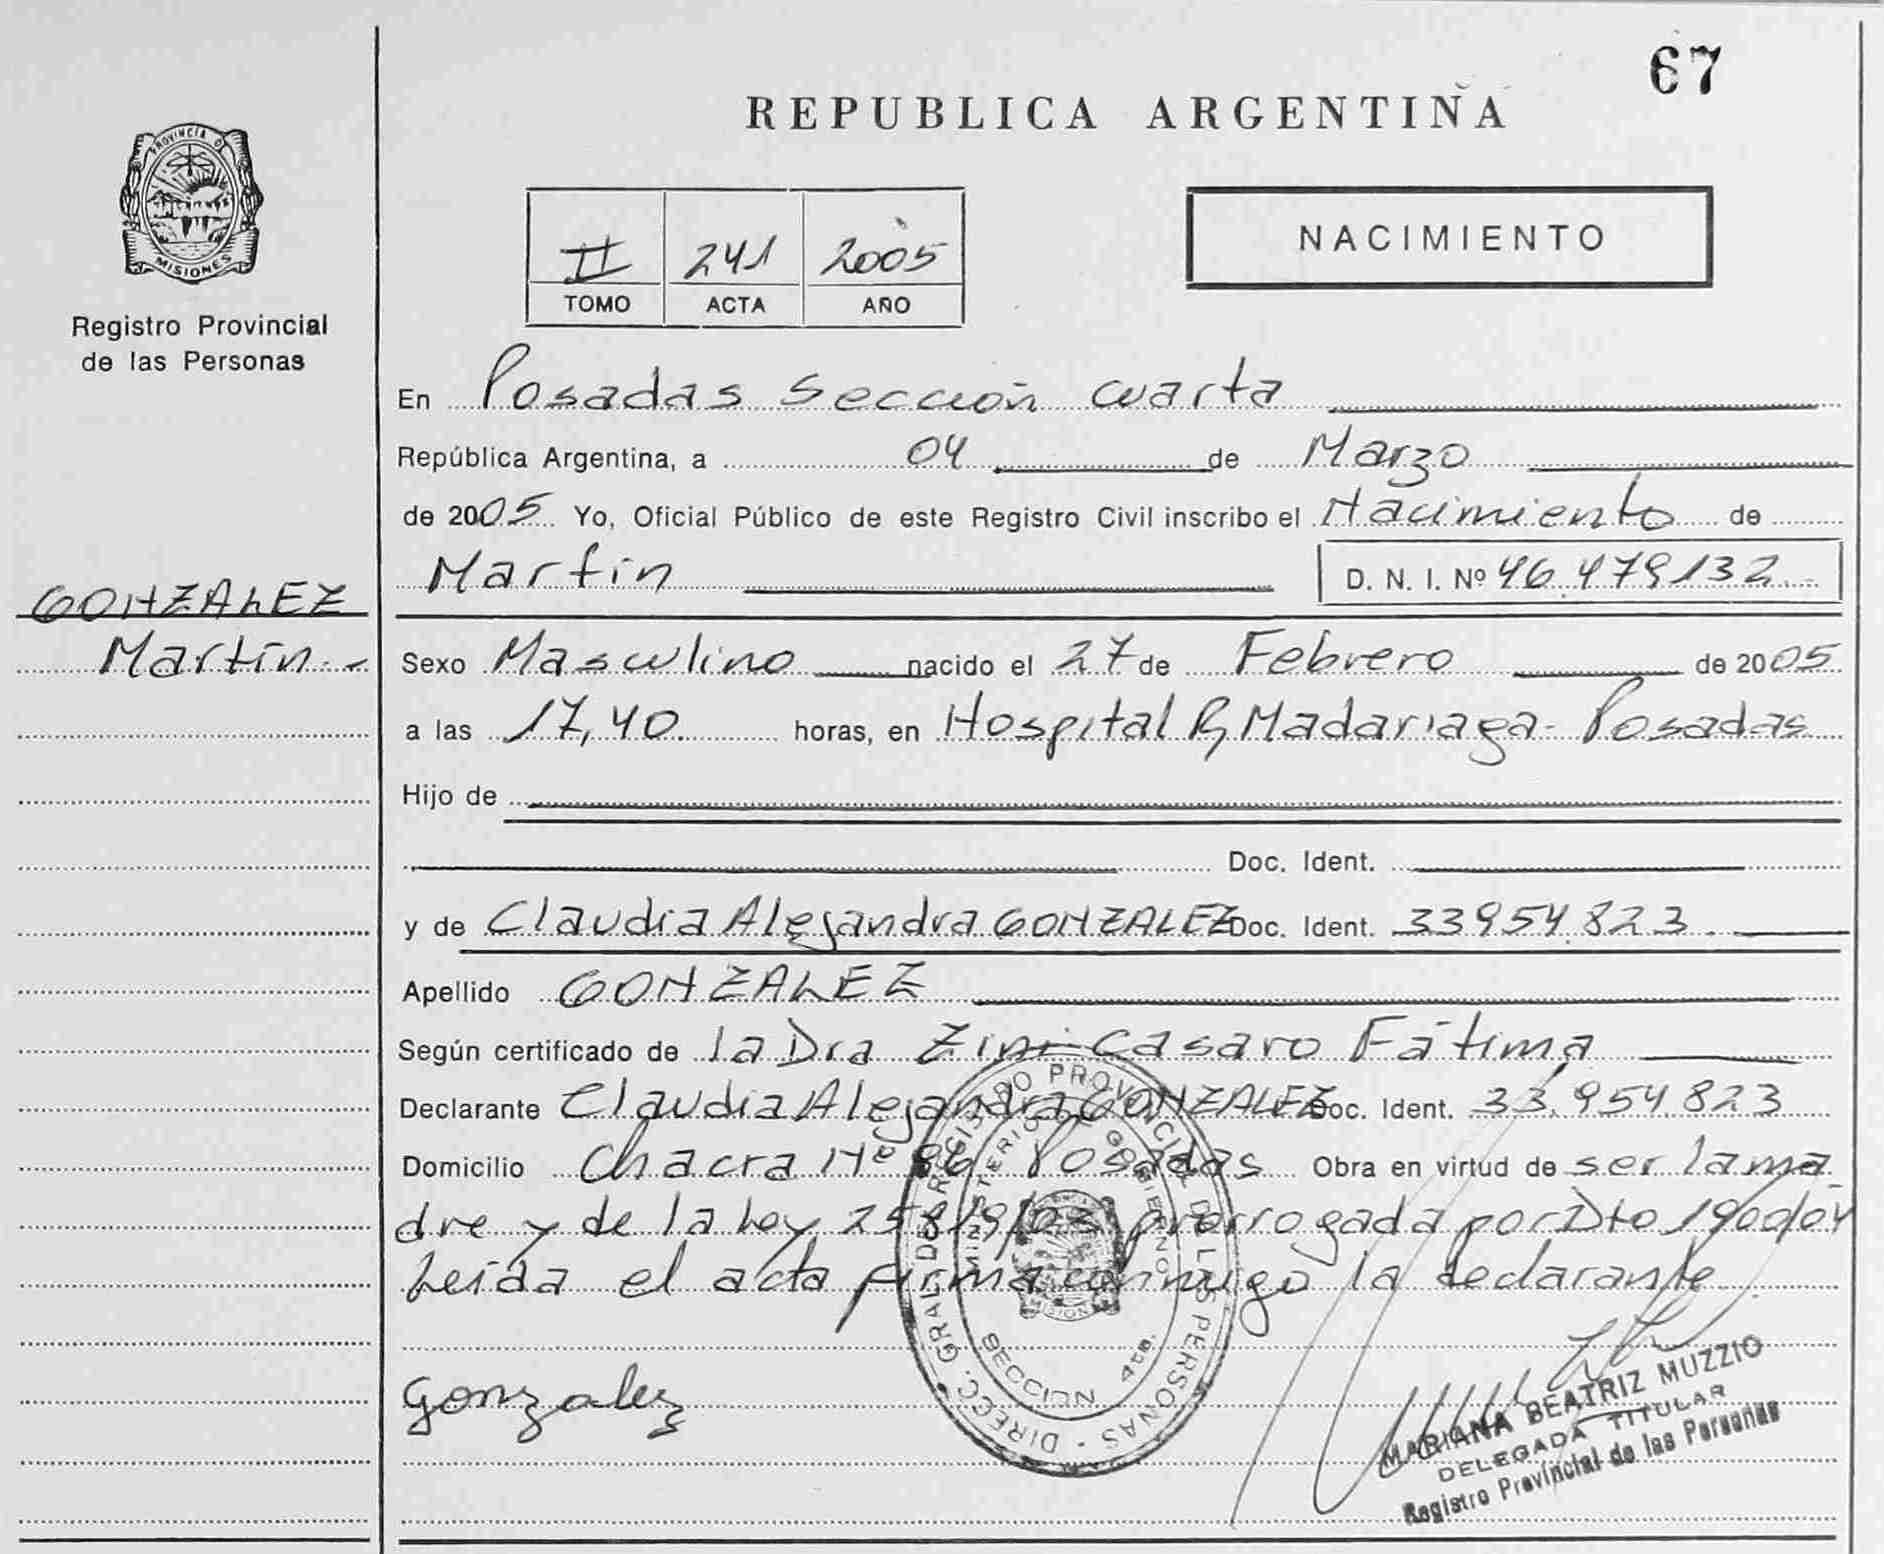 67
REPUBLICA ARGENTINA
PROVINCIA D
MISIONES
Registro Provincial
de las Personas
II 241 2005
TOMO ACTA AÑO
NACIMIENTO
En Posadas Sección cuarta
República Argentina, a 04 de Marzo
de 2005 Yo, Oficial Público de este Registro Civil inscribo el Nacimiento de
Martín D. N. I. Nº 46.479.132
GONZALEZ
Martín
Sexo Masculino nacido el 27 de Febrero de 2005
a las 17,40 horas, en Hospital R, Madariaga - Posadas
Hijo de
Doc. Ident.
y de Claudia Alejandra GONZALEZ Doc. Ident. 33954.823
Apellido GONZALEZ
Según certificado de la Dra Zini Casaro Fátima
Declarante Claudia Alejandra GONZALEZ Doc. Ident. 33.954.823
Domicilio Chacra Nº 86 Posadas Obra en virtud de ser la ma
dre y de la Ley 25819/03 prorrogada por Dto 1900/04
Leída el acta firma conmigo la declarante
Gonzalez
DIRECC. GRAL. DE REGISTRO PROVINCIAL DE LAS PERSONAS
MINISTERIO DE GOBIERNO
SECCION 4ta.
MARIANA BEATRIZ MUZZIO
DELEGADA TITULAR
Registro Provincial de las Personas